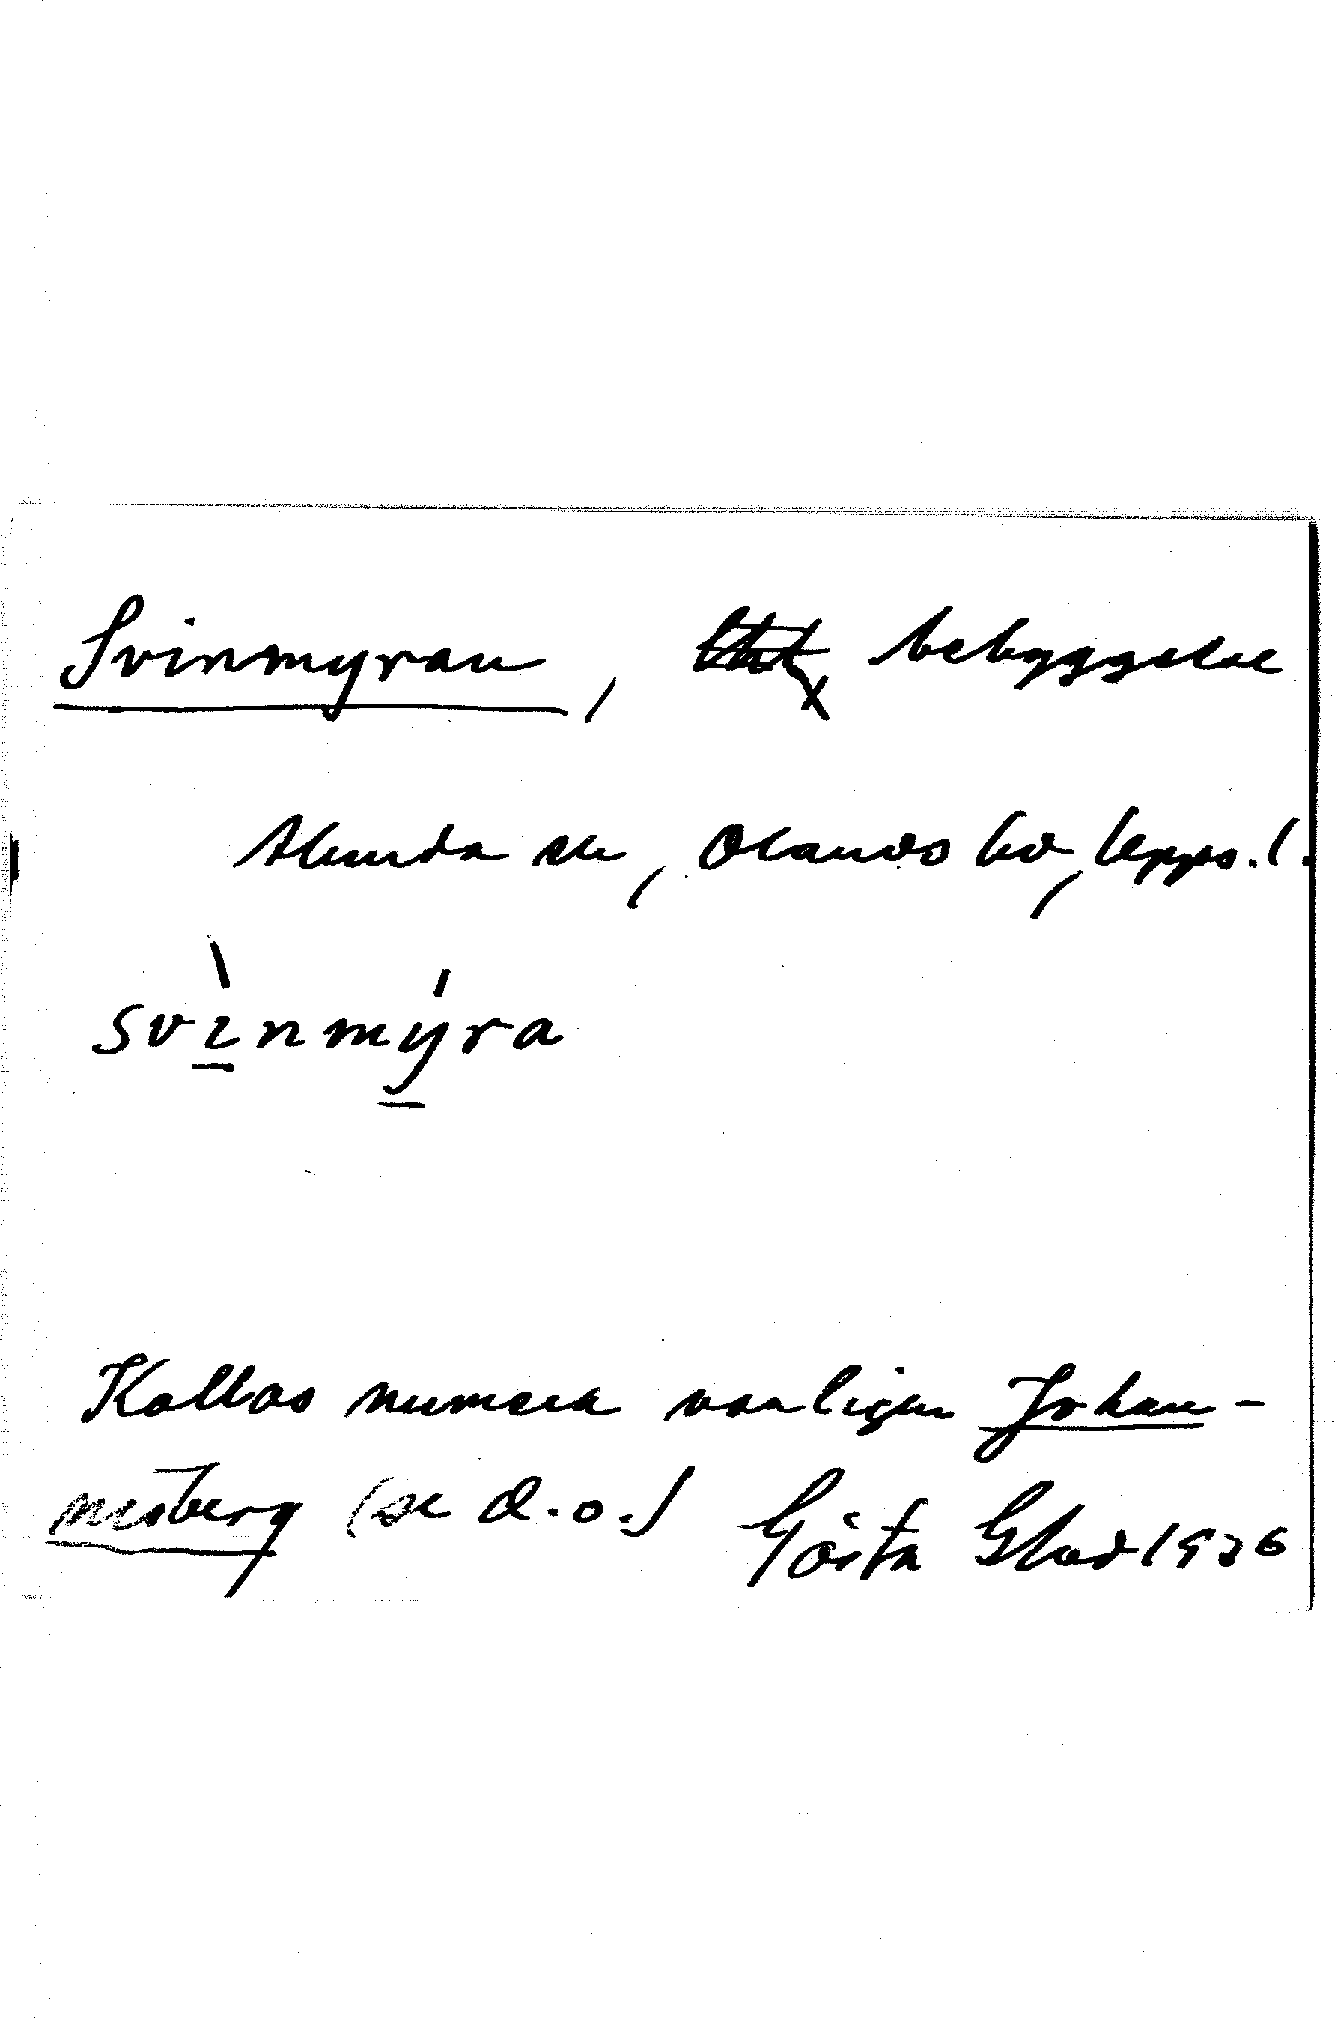 Svinmyran, bebyggelse
Alunda sn, Olands hd, Upps. l.
svìnmýra
Kallas numera vanligen Johan-
nesberg (se d.o.) Gösta Glad 1936